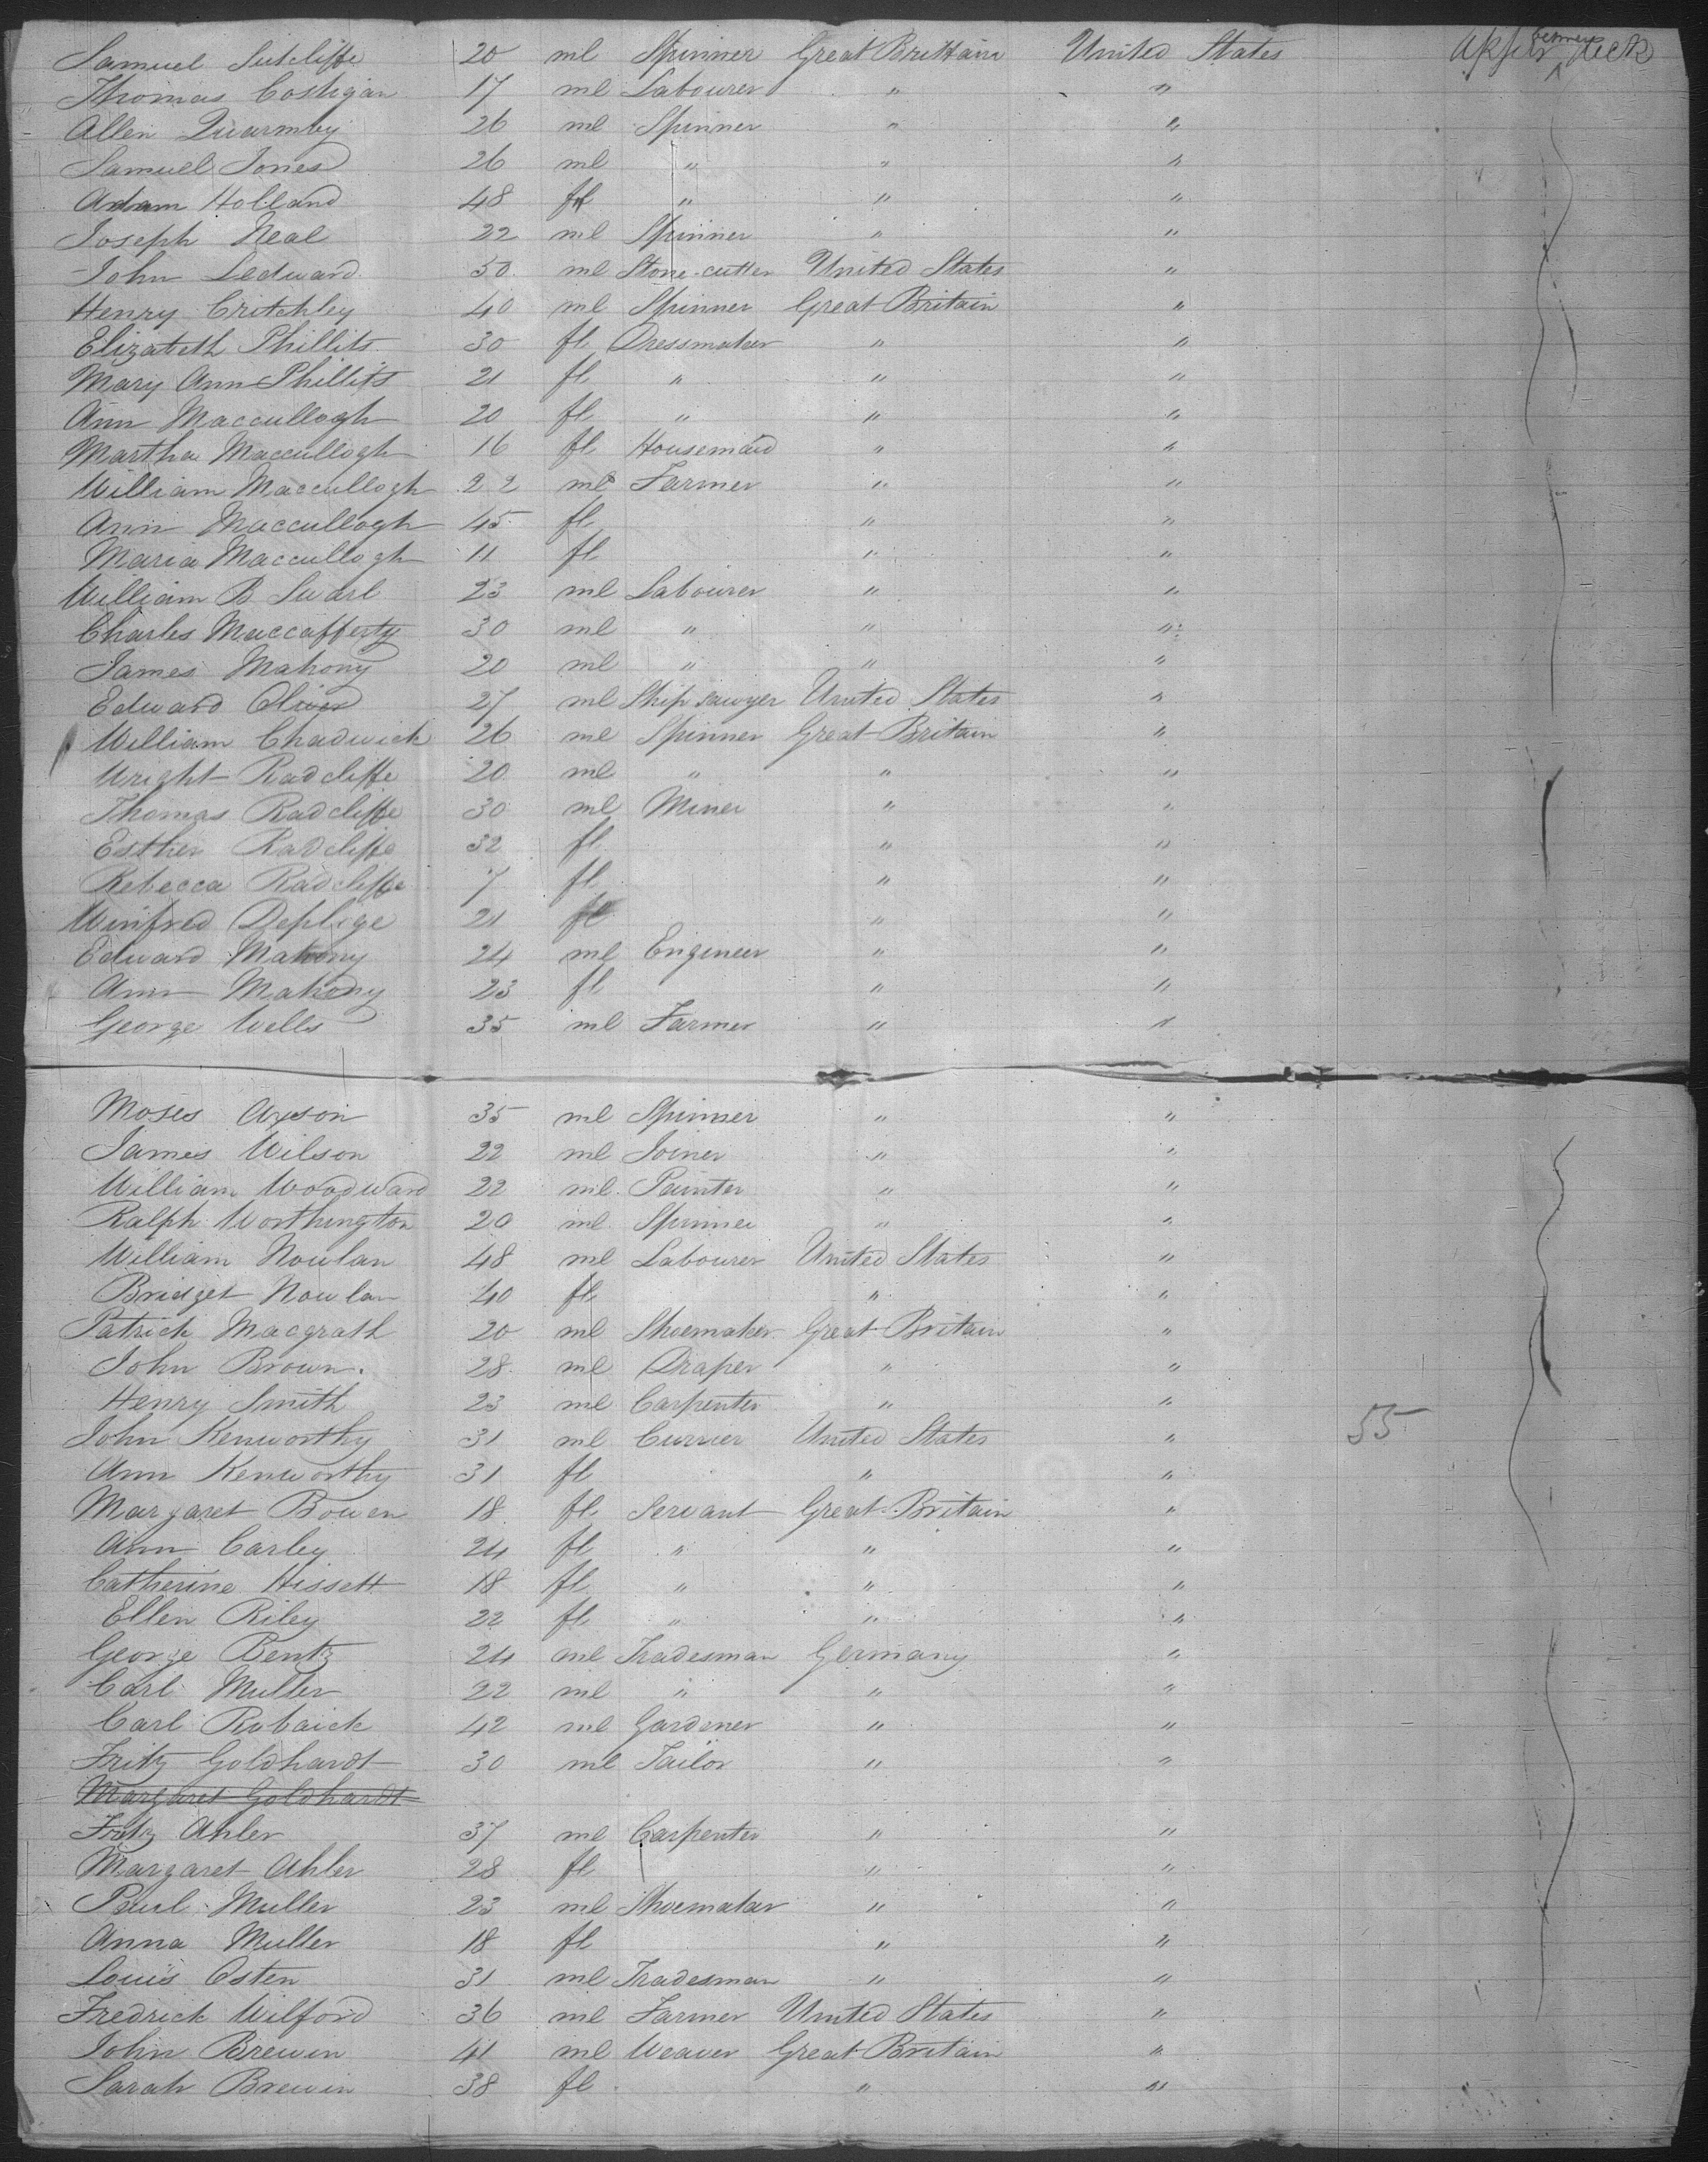 Samuel Sutcliffe 20 ml Spinner Great Brittain United States Upper between deck
Thomas Costigan 17 ml Labourer " "
Allen Quarmby 26 ml Spinner " "
Samuel Jones 26 ml " " "
Adam Holland 48 " " "
Joseph Neal 22 ml Spinner " "
John Ledward 50 ml Stone-cutter United States "
Henry Critchley 40 ml Spinner Great Britain "
Elizabeth Phillits 30 fl Dressmaker " "
Mary Ann Phillits 21 fl " " "
Ann Maccullogh 20 fl " " "
Martha Maccullogh 16 fl Housemaid " "
William Maccullogh 22 ml Farmer " "
Ann Maccullogh 45 fl " "
Maria Maccullogh 11 fl " "
William B 23 ml Labourer " "
Charles Maccafferty 30 ml " " "
James Mahony 20 ml " " "
Edward Oliver 27 ml Ship sawyer United States "
William Chadwick 26 ml Spinner Great Britain "
Wright Radcliffe 20 ml " " "
Thomas Radcliffe 30 ml Miner " "
Esther Radcliffe 32 fl " "
Rebecca Radcliffe 7 fl " "
Winfred Deplige 21 fl " "
Edward Mahony 24 ml Engineer " "
Ann Mahony 23 fl " "
George Wells 35 ml Farmer " "
Moses Axson 35 ml Spinner " "
James Wilson 22 ml Joiner " "
William Woodward 22 ml Painter " "
Ralph Worthington 20 ml Spinner " "
William Nowlan 48 ml Labourer United States "
Bridget Nowlan 40 fl " "
Patrick Macgrath 20 ml Shoemaker Great Britain "
John Brown. 28 ml Draper " "
Henry Smith 23 ml Carpenter " "
John Kenworthy 31 ml Currier United States " 55
Ann Kenworthy 31 fl " "
Margaret Bowen 18 fl Servant Great Britain "
Ann Carley 24 fl " " "
Catherine Hissett 18 fl " " "
Ellen Riley 22 fl " " "
George Bentz 24 ml Tradesman Germany "
Carl Muller 22 ml " " "
Carl Robaick 42 ml Gardener " "
Fritz Goldhardt 30 ml Tailor " "
Margaret Goldhardt
Fritz Ahler 37 ml Carpenter " "
Margaret Ahler 28 fl " "
Paul Muller 23 ml Shoemaker " "
Anna Muller 18 fl " "
Louis Osten 31 ml Tradesman " "
Fredrick Wilford 36 ml Farmer United States "
John Brewin 41 ml Weaver Great Britain "
Sarah Brewin 38 fl " "